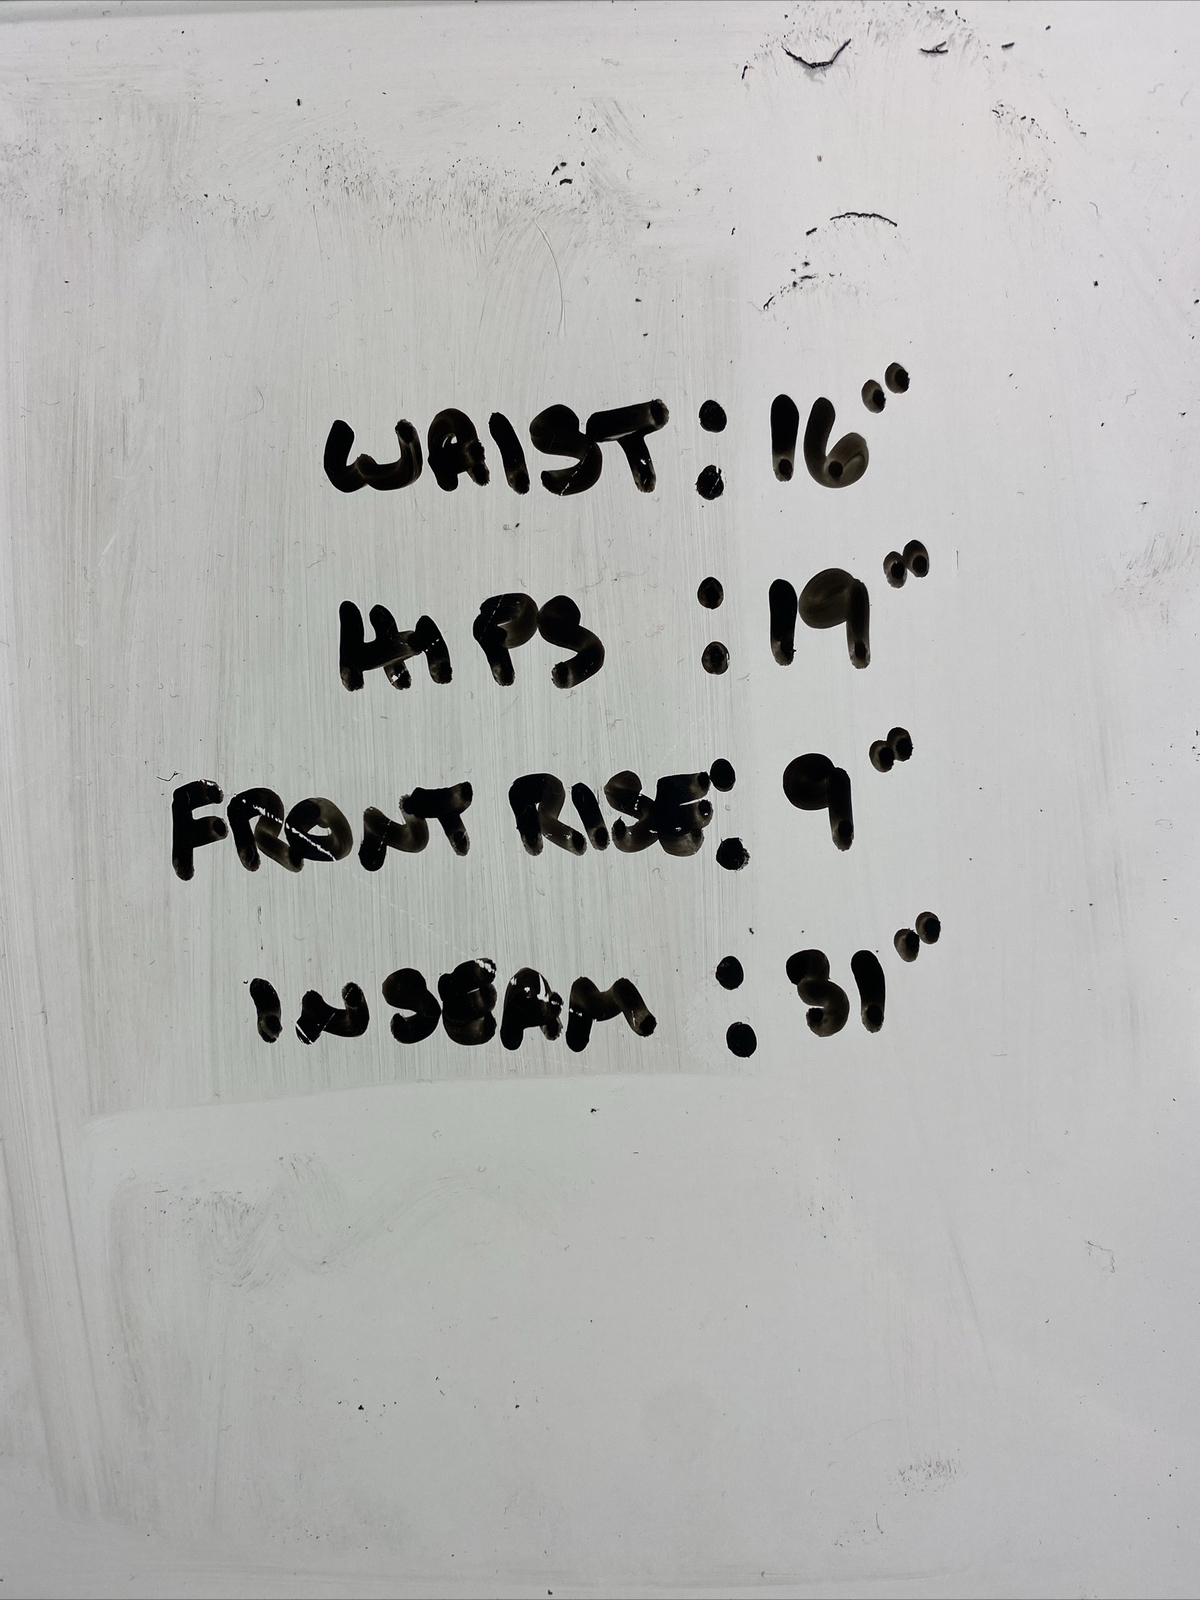 WAIST : 16"
HIPS : 19"
FRONT RISE : 9"
INSEAM : 31"